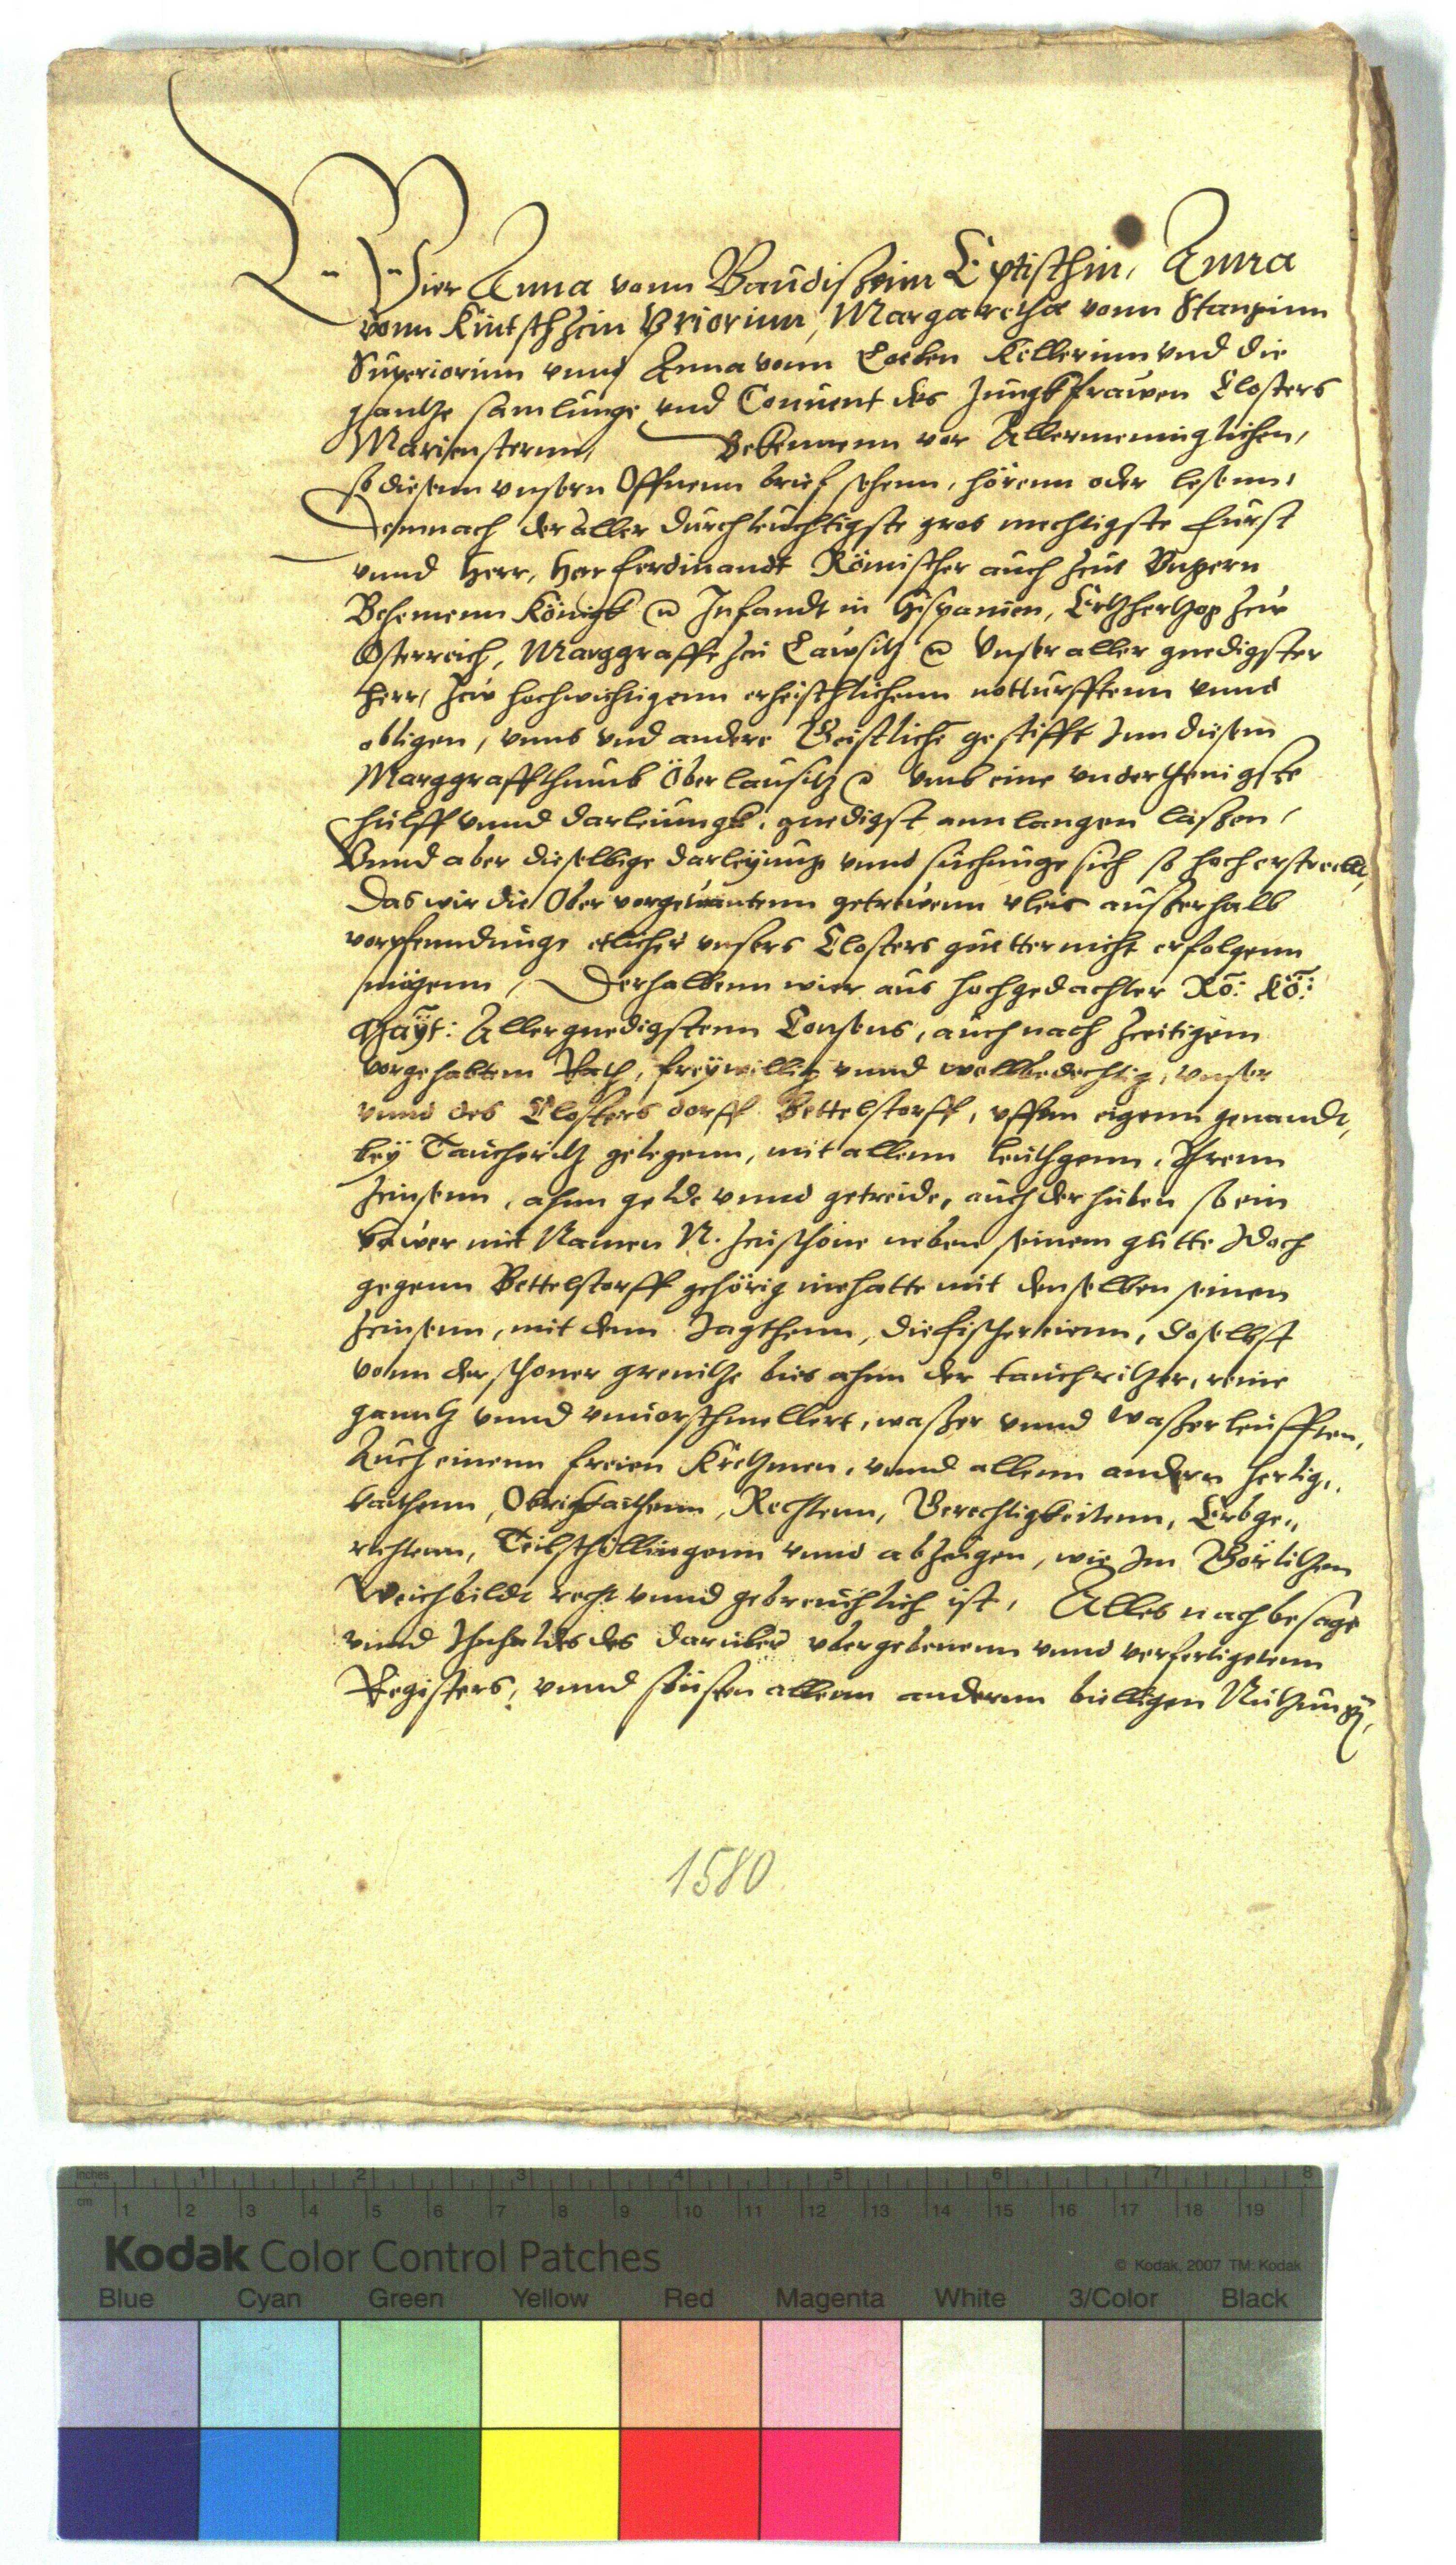 Wier Anna vonn Baudissinn Eptischin, Anna
vonn Kintschhin Priorinn, Margaretha vonn Stanginn
Superiorinn vnnd Anna vonn Loeben Kellerinn vnd die
gantze samlunge vnd Conuent des Jungkfrawen Closters
Mariensternn, Bekennenn vor Allermenniglichen,
so diesenn vnsern Offnenn brief sehenn, hörenn oder lesenn,
Demnach der aller durchleuchtigste gros mechtigste fürst
vnnd Herr, Herr ferdinandt Römischer auch zuu Vngern
Behemenn Königk Infandt in Hispanien, Ertzhertzog zuu
Osterreich, Marggraffe zu Lawsitz Vnser aller gnedigster
herr, zuu hochwichtigenn erheischlichenn notturfftenn vnnd
obligen, vnns vnd andere Geistliche gestifft Inn diesem
Marggraffthumb Oberlausitz vmb eine vnderthenigste
hülff vnnd darleiungk, gnedigst annlangen lassen,
Vnnd aber dieselbige darleyung vnnd suchunge sich so hoch erstreckt,
Das wir die Ober vorgewantenn getrewenn vleis ausserhalb
vorpfenndunge etlicher vnsers Closters guetter nicht erfolgenn
mögenn, Derhalbenn wier aus hochgedachter Rö: Kö:
Mayt: Allergnedigstenn Consens, auch nach zeitigem
vorgehabtem Rath, freywillig vnnd wollbedechtig, vnser
vnnd des Closters dorff Bettelstorff, vffm eigenn genandt,
bey Tauchritz gelegenn, mit allenn leuthgenn, Ihrenn
zinsenn, ahnn gelde vnnd getreide, auch der huben so ein
bawer mit Namen N. zu schöne neben seinem gutte Idoch
gegenn Bettelstorff gehörig innehatte mit denselben seinen
zinsenn, mit denn Jagthenn, die fischereienn, doselbst
vonn der schoner grenitze bies ahnn der tauchritzer, reine
ganntz vnnd vnuorschmellert, wasser vnnd wasserleufften,
Auch einenn freien Kretzmen, vnnd allenn andern herlig-
kaithenn, Obrigkaithenn, Rechtenn, Gerechtigkeitenn, Erbge-
richtenn, Teilschillingenn vnnd abzugen, wie Im Görlitzen
Weichbilde recht vnnd gebreuchlich ist, Alles nach besage
vnnd Inhaldes des darüber vbergebenenn vnnd verfertigetenn
Registers, vnnd sünsten allenn anderen billigen Nutzung,
1580
Inches 1 2 3 4 5 6 7 8
cm 1 2 3 4 5 6 7 8 9 10 11 12 13 14 15 16 17 18 19
Kodak Color Control Patches
© Kodak, 2007 TM: Kodak
Blue Cyan Green Yellow Red Magenta White 3/Color Black